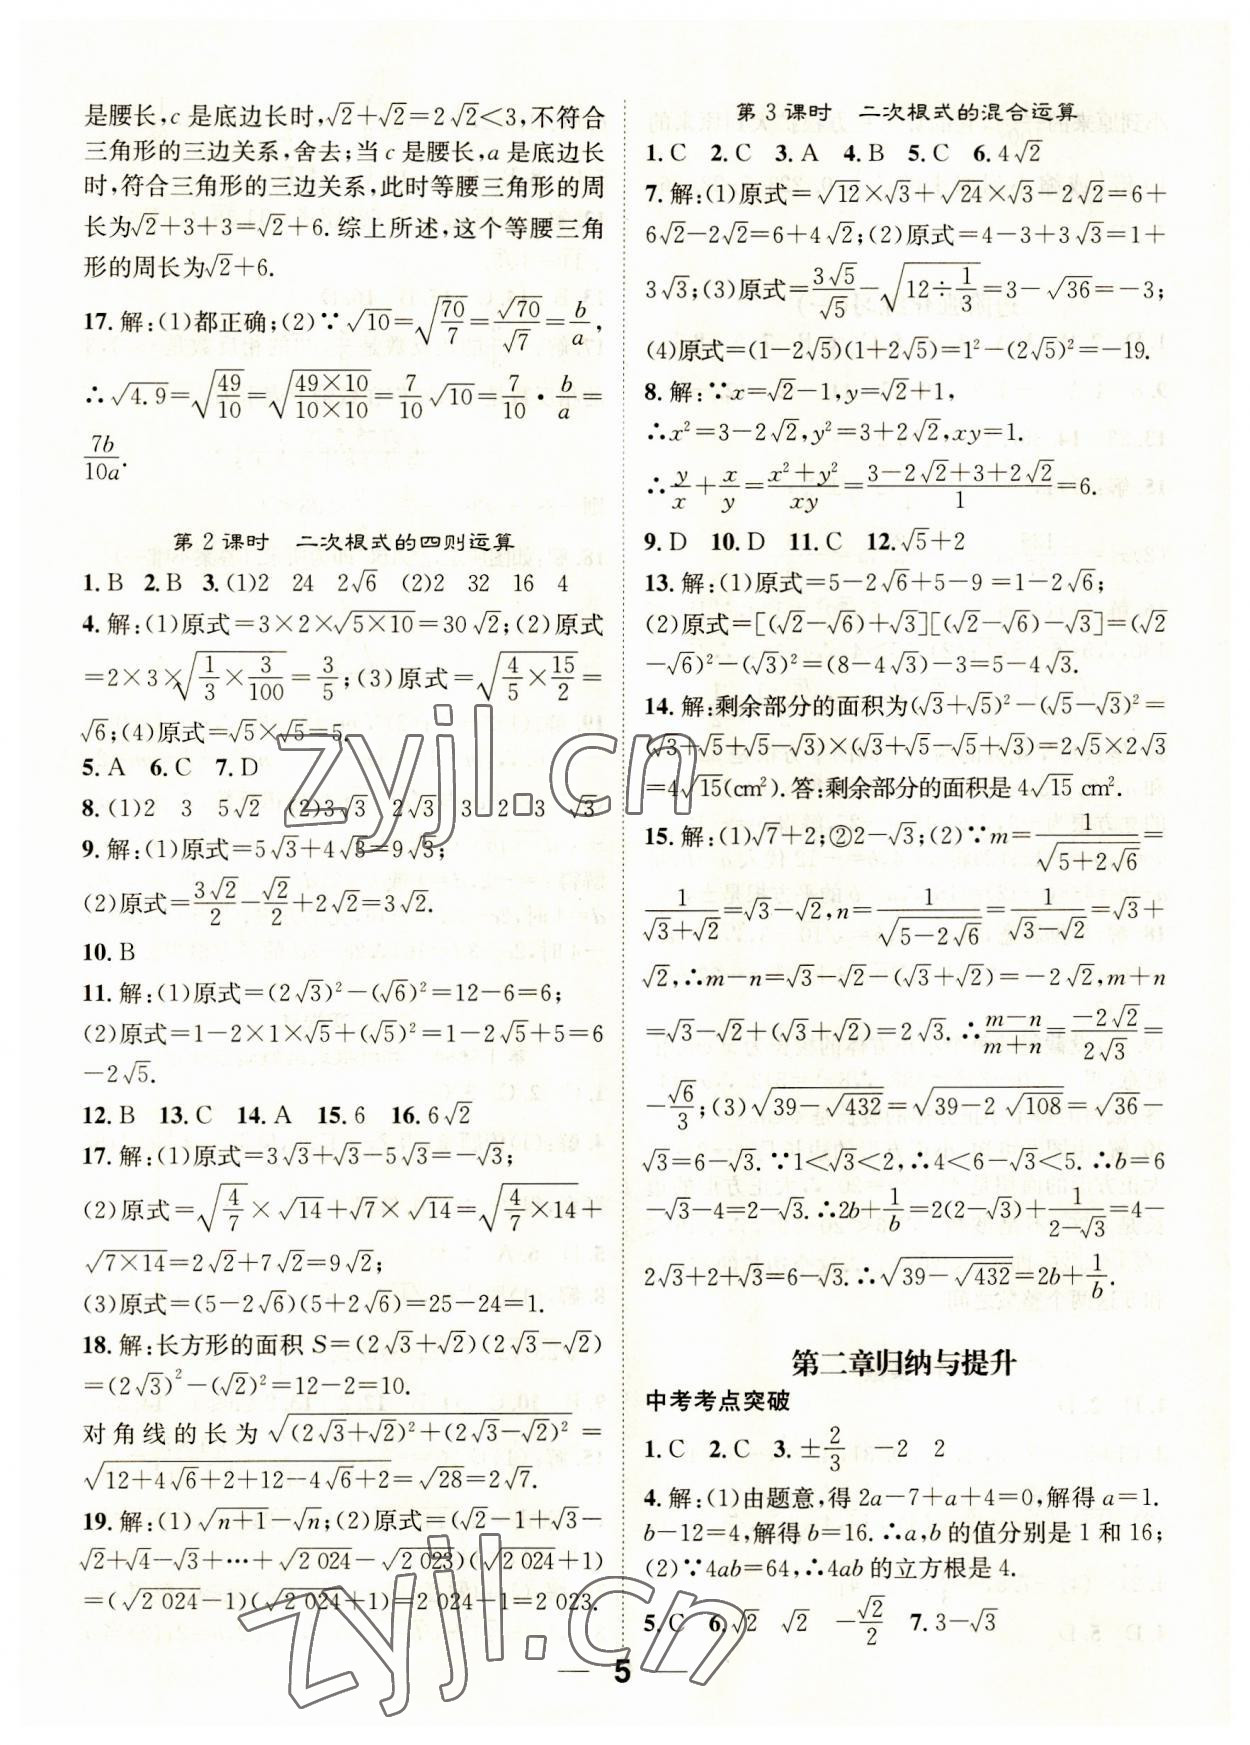 是腰长,c 是底边长时,√2+√2=2√2<3,不符合
三角形的三边关系,舍去;当 c 是腰长,a 是底边长
时,符合三角形的三边关系,此时等腰三角形的周
长为√2+3+3=√2+6. 综上所述,这个等腰三角
形的周长为√2+6.
17. 解:(1)都正确;(2)∵√10=√(70/7)=√70/√7=b/a,
∴√4.9=√(49/10)=√((49×10)/(10×10))=7/10 √10=7/10·b/a=
7b/10a.
第 2 课时 二次根式的四则运算
1. B 2. B 3. (1)2 24 2√6 (2)2 32 16 4
4. 解:(1)原式=3×2×√(5×10)=30√2;(2)原式
=2×3×√(1/3×3/100)=3/5;(3)原式=√(4/5×15/2)=
√6;(4)原式=√5×√5=5.
5. A 6. C 7. D
8. (1)2 3 5√2 (2)3√3 2√3 3 2 3 √3
9. 解:(1)原式=5√3+4√3=9√3;
(2)原式=3√2/2-√2/2+2√2=3√2.
10. B
11. 解:(1)原式=(2√3)²-(√6)²=12-6=6;
(2)原式=1-2×1×√5+(√5)²=1-2√5+5=6
-2√5.
12. B 13. C 14. A 15. 6 16. 6√2
17. 解:(1)原式=3√3+√3-5√3=-√3;
(2)原式=√(4/7)×√14+√7×√14=√(4/7×14)+
√(7×14)=2√2+7√2=9√2;
(3)原式=(5-2√6)(5+2√6)=25-24=1.
18. 解:长方形的面积 S=(2√3+√2)(2√3-√2)
=(2√3)²-(√2)²=12-2=10.
对角线的长为√((2√3+√2)²+(2√3-√2)²)=
√(12+4√6+2+12-4√6+2)=√28=2√7.
19. 解:(1)√(n+1)-√n;(2)原式=(√2-1+√3-
√2+√4-√3+…+√2 024-√2 023)(√2 024+1)
=(√2 024-1)(√2 024+1)=2 024-1=2 023.
第 3 课时 二次根式的混合运算
1. C 2. C 3. A 4. B 5. C 6. 4√2
7. 解:(1)原式=√12×√3+√24×√3-2√2=6+
6√2-2√2=6+4√2;(2)原式=4-3+3√3=1+
3√3;(3)原式=3√5/√5-√(12÷1/3)=3-√36=-3;
(4)原式=(1-2√5)(1+2√5)=1²-(2√5)²=-19.
8. 解:∵x=√2-1,y=√2+1,
∴x²=3-2√2,y²=3+2√2,xy=1.
∴y/x+x/y=(x²+y²)/xy=(3-2√2+3+2√2)/1=6.
9. D 10. D 11. C 12. √5+2
13. 解:(1)原式=5-2√6+5-9=1-2√6;
(2)原式=[(√2-√6)+√3][(√2-√6)-√3]=(√2
-√6)²-(√3)²=(8-4√3)-3=5-4√3.
14. 解:剩余部分的面积为(√3+√5)²-(√5-√3)²=
(√3+√5+√5-√3)×(√3+√5-√5+√3)=2√5×2√3
=4√15(cm²). 答:剩余部分的面积是 4√15 cm².
15. 解:(1)√7+2;②2-√3;(2)∵m=1/√(5+2√6)=
1/(√3+√2)=√3-√2,n=1/√(5-2√6)=1/(√3-√2)=√3+
√2,∴m-n=√3-√2-(√3+√2)=-2√2,m+n
=√3-√2+(√3+√2)=2√3. ∴(m-n)/(m+n)=-2√2/2√3=
-√6/3;(3)√(39-√432)=√(39-2√108)=√36-
√3=6-√3. ∵1<√3<2,∴4<6-√3<5. ∴b=6
-√3-4=2-√3. ∴2b+1/b=2(2-√3)+1/(2-√3)=4-
2√3+2+√3=6-√3. ∴√(39-√432)=2b+1/b.
第二章归纳与提升
中考考点突破
1. C 2. C 3. ±2/3 -2 2
4. 解:(1)由题意,得 2a-7+a+4=0,解得 a=1.
b-12=4,解得 b=16. ∴a,b 的值分别是 1 和 16;
(2)∵4ab=64,∴4ab 的立方根是 4.
5. C 6. √2 √2 -√2/2 7. 3-√3
5
zyjl.cn
zyjl.cn